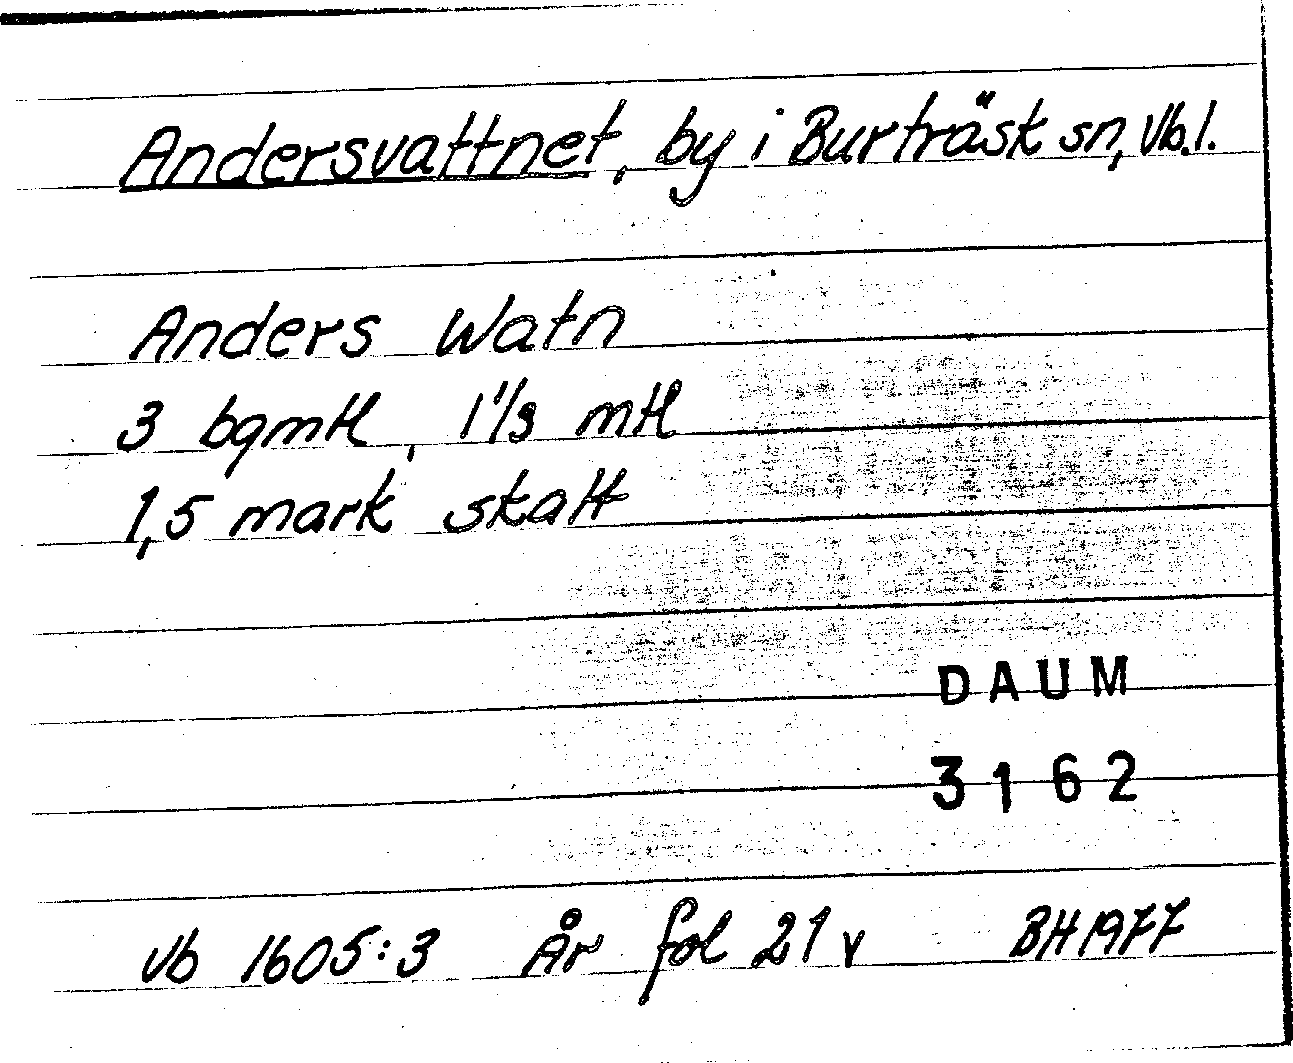 Andersvattnet, by i Burträsk sn, Vb.l.
Anders Watn
3 bgmtl, 1 1/3 mtl
1,5 mark skatt
DAUM
3162
Vb 1605:3 År fol 21 v BH 1977